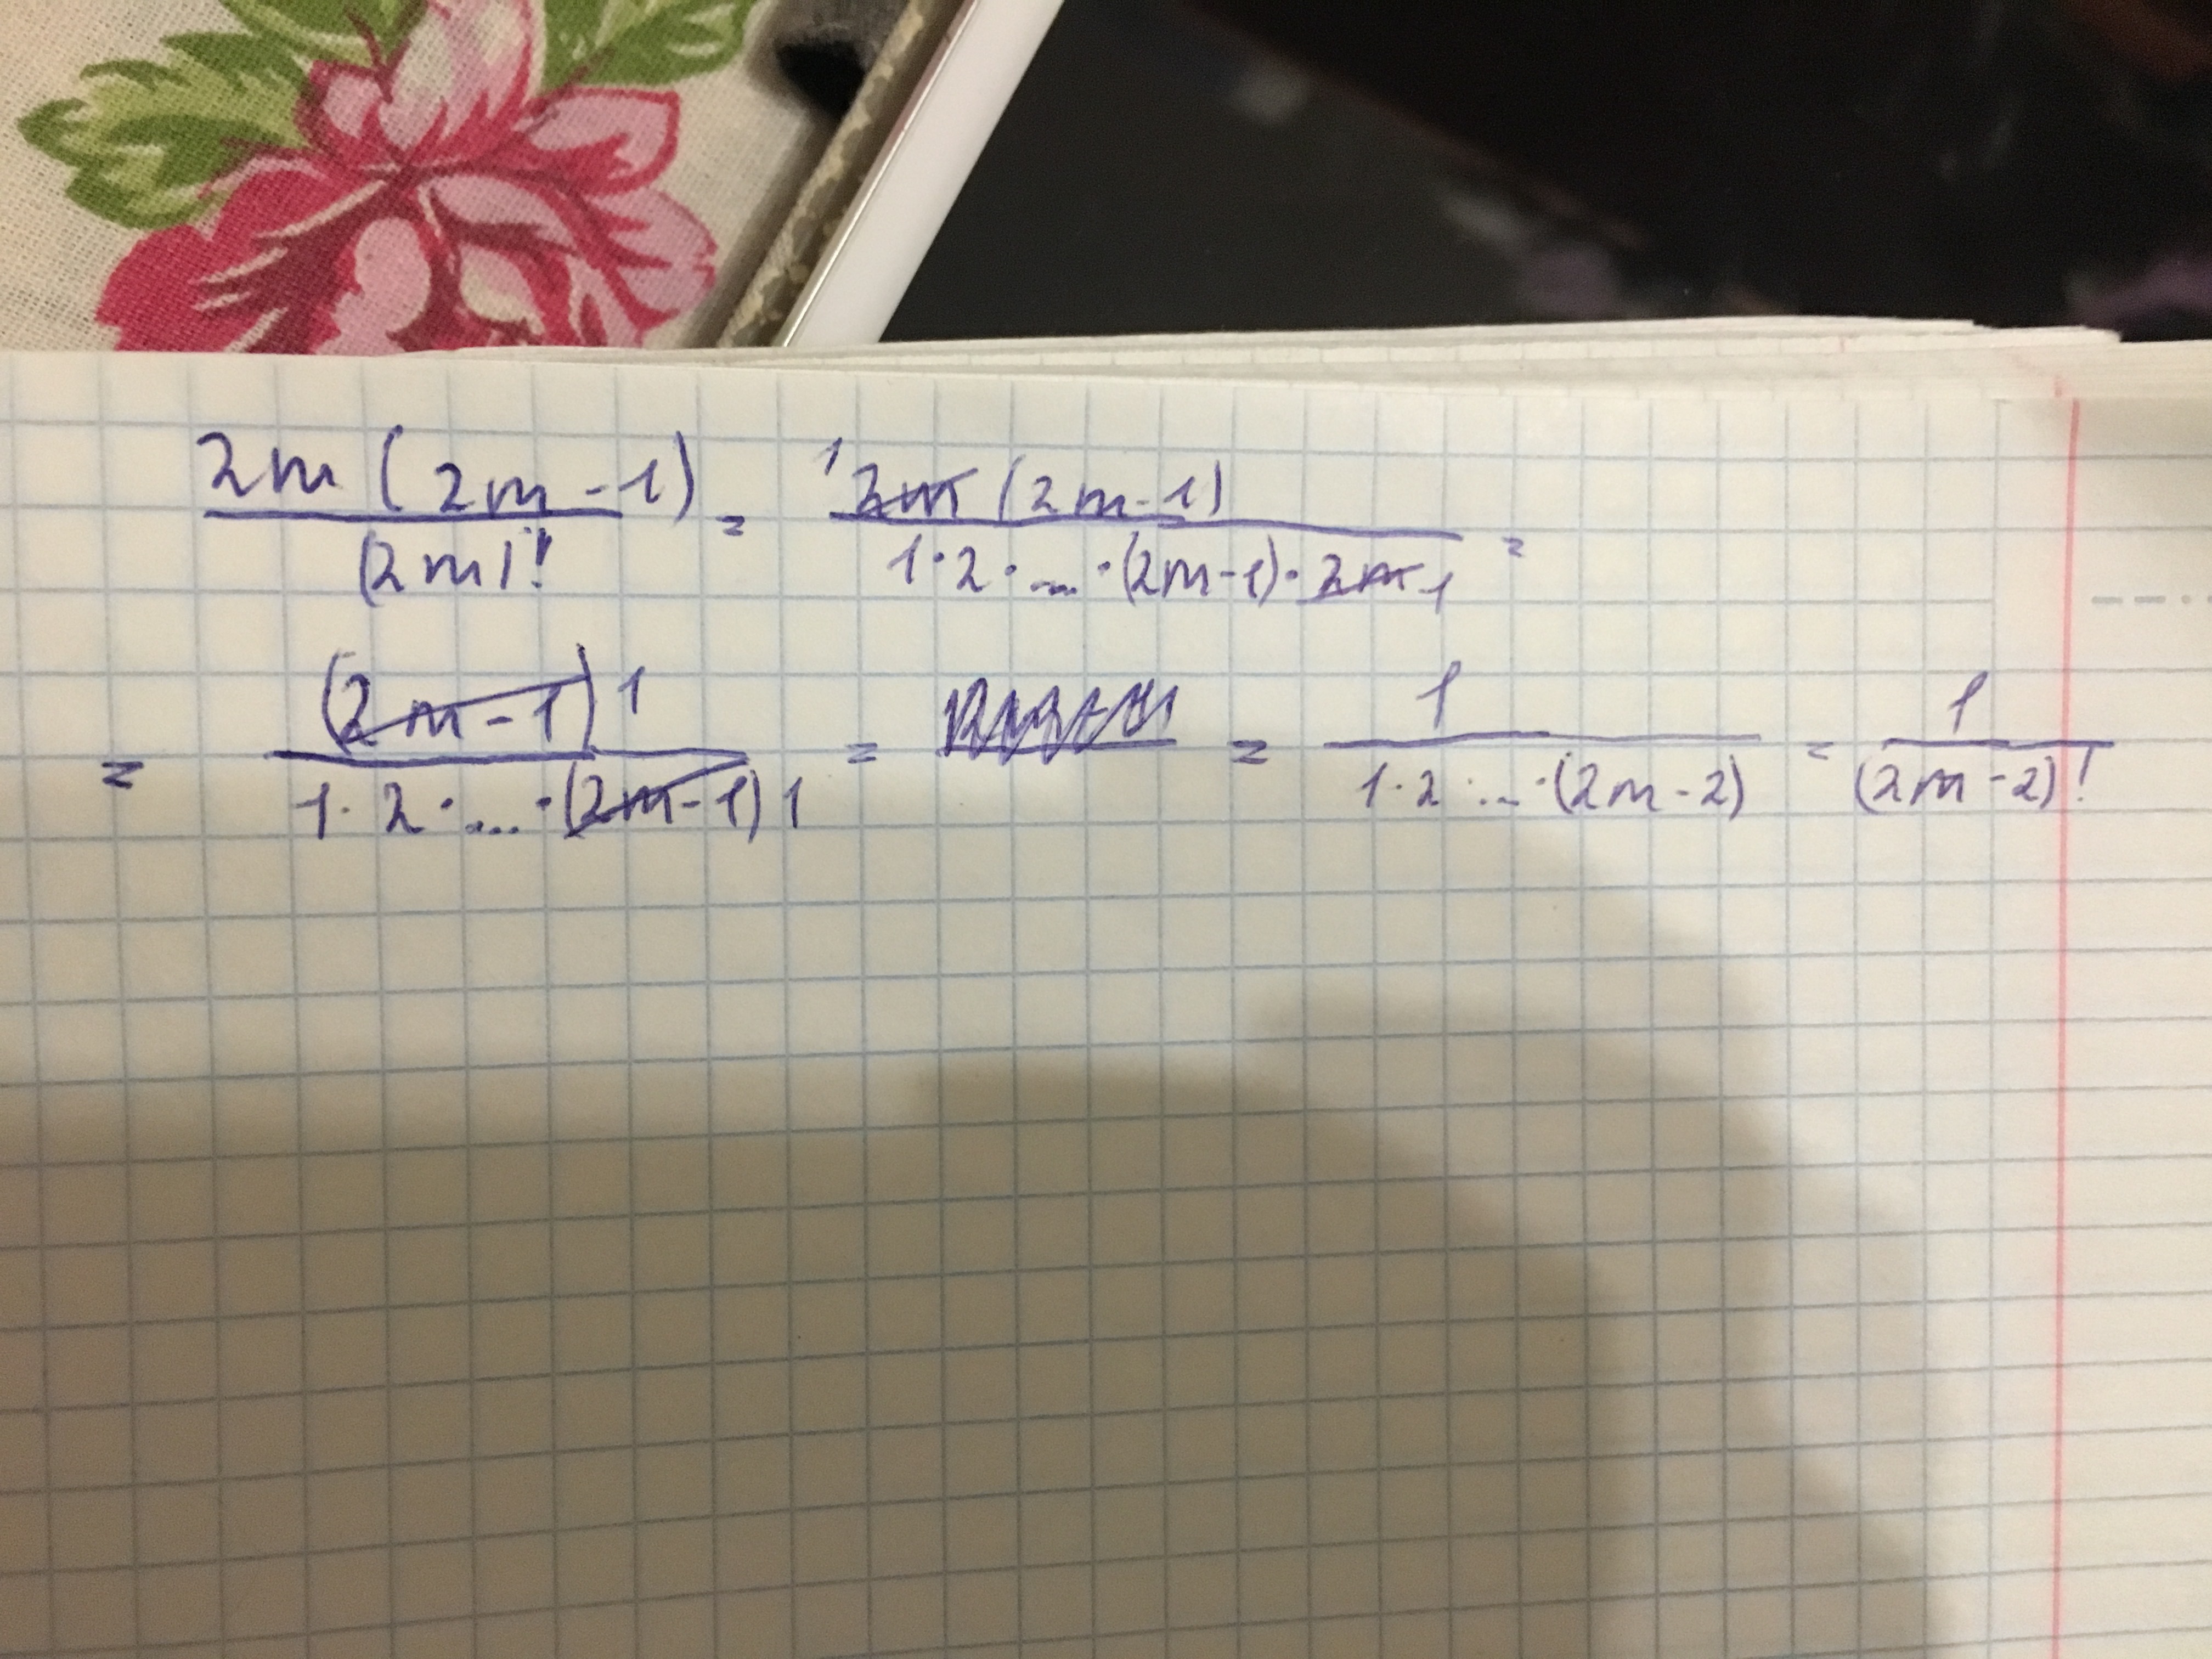 2m(2m-1)/(2m)! = 1 2m(2m-1)/1·2·...·(2m-1)·2m 1 =
= (2m-1) 1/1·2·...·(2m-1) 1 = = 1/1·2·...·(2m-2) = 1/(2m-2)!